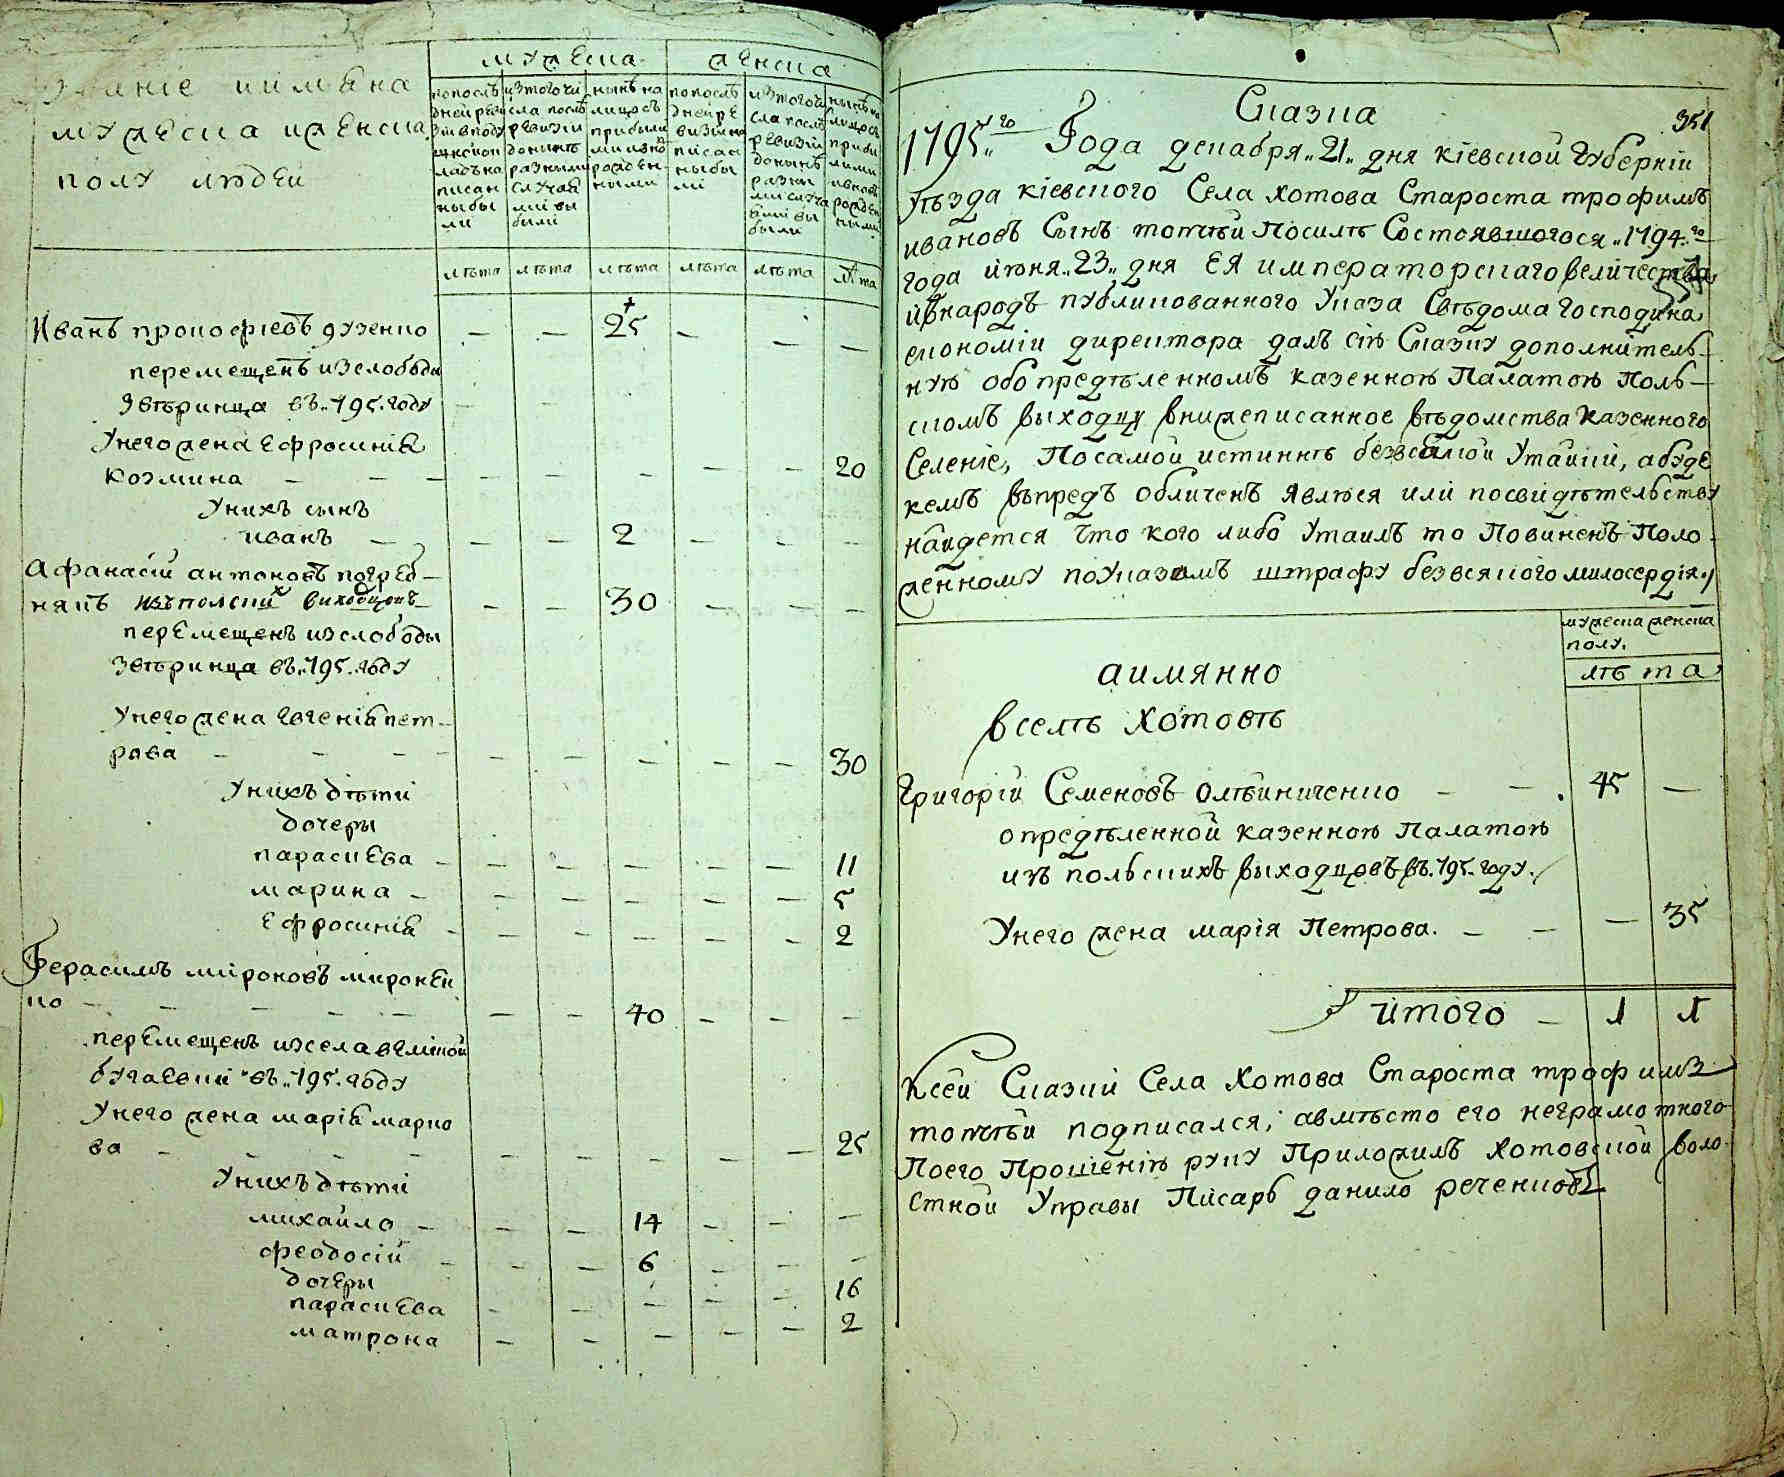 Званіе и имѧна
мужеска и женска
полу людей
мужеска
женска
по послѣ
дней реви
зіи в поду
шной ок
ладъ на
писан
ны бы
ли
изтого чи
сла послѣ
ревизіи
до нынѣ
разными
случая
ми вы
были
нынѣ на
лицо съ
прибыли
ми и вно
рожден
ными
по послѣ
дней ре
визіи на
писан
ны бы
ли
изтого чи
сла послѣ
ревизіи
до нынѣ
разны
ми случа
ями вы
были
нынѣ на
лицо съ
прибы
лыми
и вновь
рожден
ными
лѣта лѣта лѣта лѣта лѣта лѣта
Иванъ прокофіевъ дузенко — — 25 — — —
перемещенъ изслободы
Звѣринца въ 795 году
Унего жена Ефросинія
козмина — — — — — — 20
Унихъ сынъ
иванъ — — — 2 — — —
Афанасій антоновъ погреб-
някъ изъ полский виходцовъ — — 30 — — —
перемещенъ изслободы
Звѣринца въ 795 году
Унего жена Евгенія пет-
рова — — — — — — 30
Унихъ дѣти
дочеры
параскева — — — — — — 11
марина — — — — — — 5
Ефросинія — — — — — — 2
Герасимъ мироновъ миронен
ко — — — 40 — — —
перемещенъ изсела великой
бугаевки въ 795 году
Унего жена марія марко
ва — — — — — — 25
Унихъ дѣти
михайло — — — 14 — — —
феодосій — — — 6 — — —
дочеры
параскева — — — — — 16
матрона — — — — — 2
Сказка
351
1795 го Года декабря 21 дня кіевской губерніи
уѣзда кіевского Села хотова Староста трофимъ
ивановъ Сынъ топчѣй Посилѣ Состоявшогося 1794 го
года июня 23 дня ЕЯ императорскаго величества
ивнародъ публикованного Указа Свѣдома господина
економіи директора далъ сію Сказку дополнитель-
ную обопредѣленномъ казенною Палатою Поль-
скомъ выходцу внижеписанное вѣдомства казенного
Селеніе, Посамой истиннѣ безвсякой Утайки, абуде
кемъ въпредъ обличенъ явлюся или посвидѣтельству
найдется что кого либо Утаилъ то Повиненъ Поло-
женному поуказамъ штрафу безвсякого милосердія
мужеска женска
полу.
лѣта
аимянно
вселѣ хотовѣ
Григорій Семеновъ олѣйниченко — — 45 —
опредѣленной казенною Палатою
изъ польскихъ выходцовъ въ 795 году.
Унего жена марія Петрова. — — — 35
Итого — 1 1
Ксей Сказки Села хотова Староста трофимъ
топчѣй подписался, авмѣсто его неграмотного
Поего Прошенію руку Приложилъ хотовской воло
стной Управы Писарь данило реченковъ